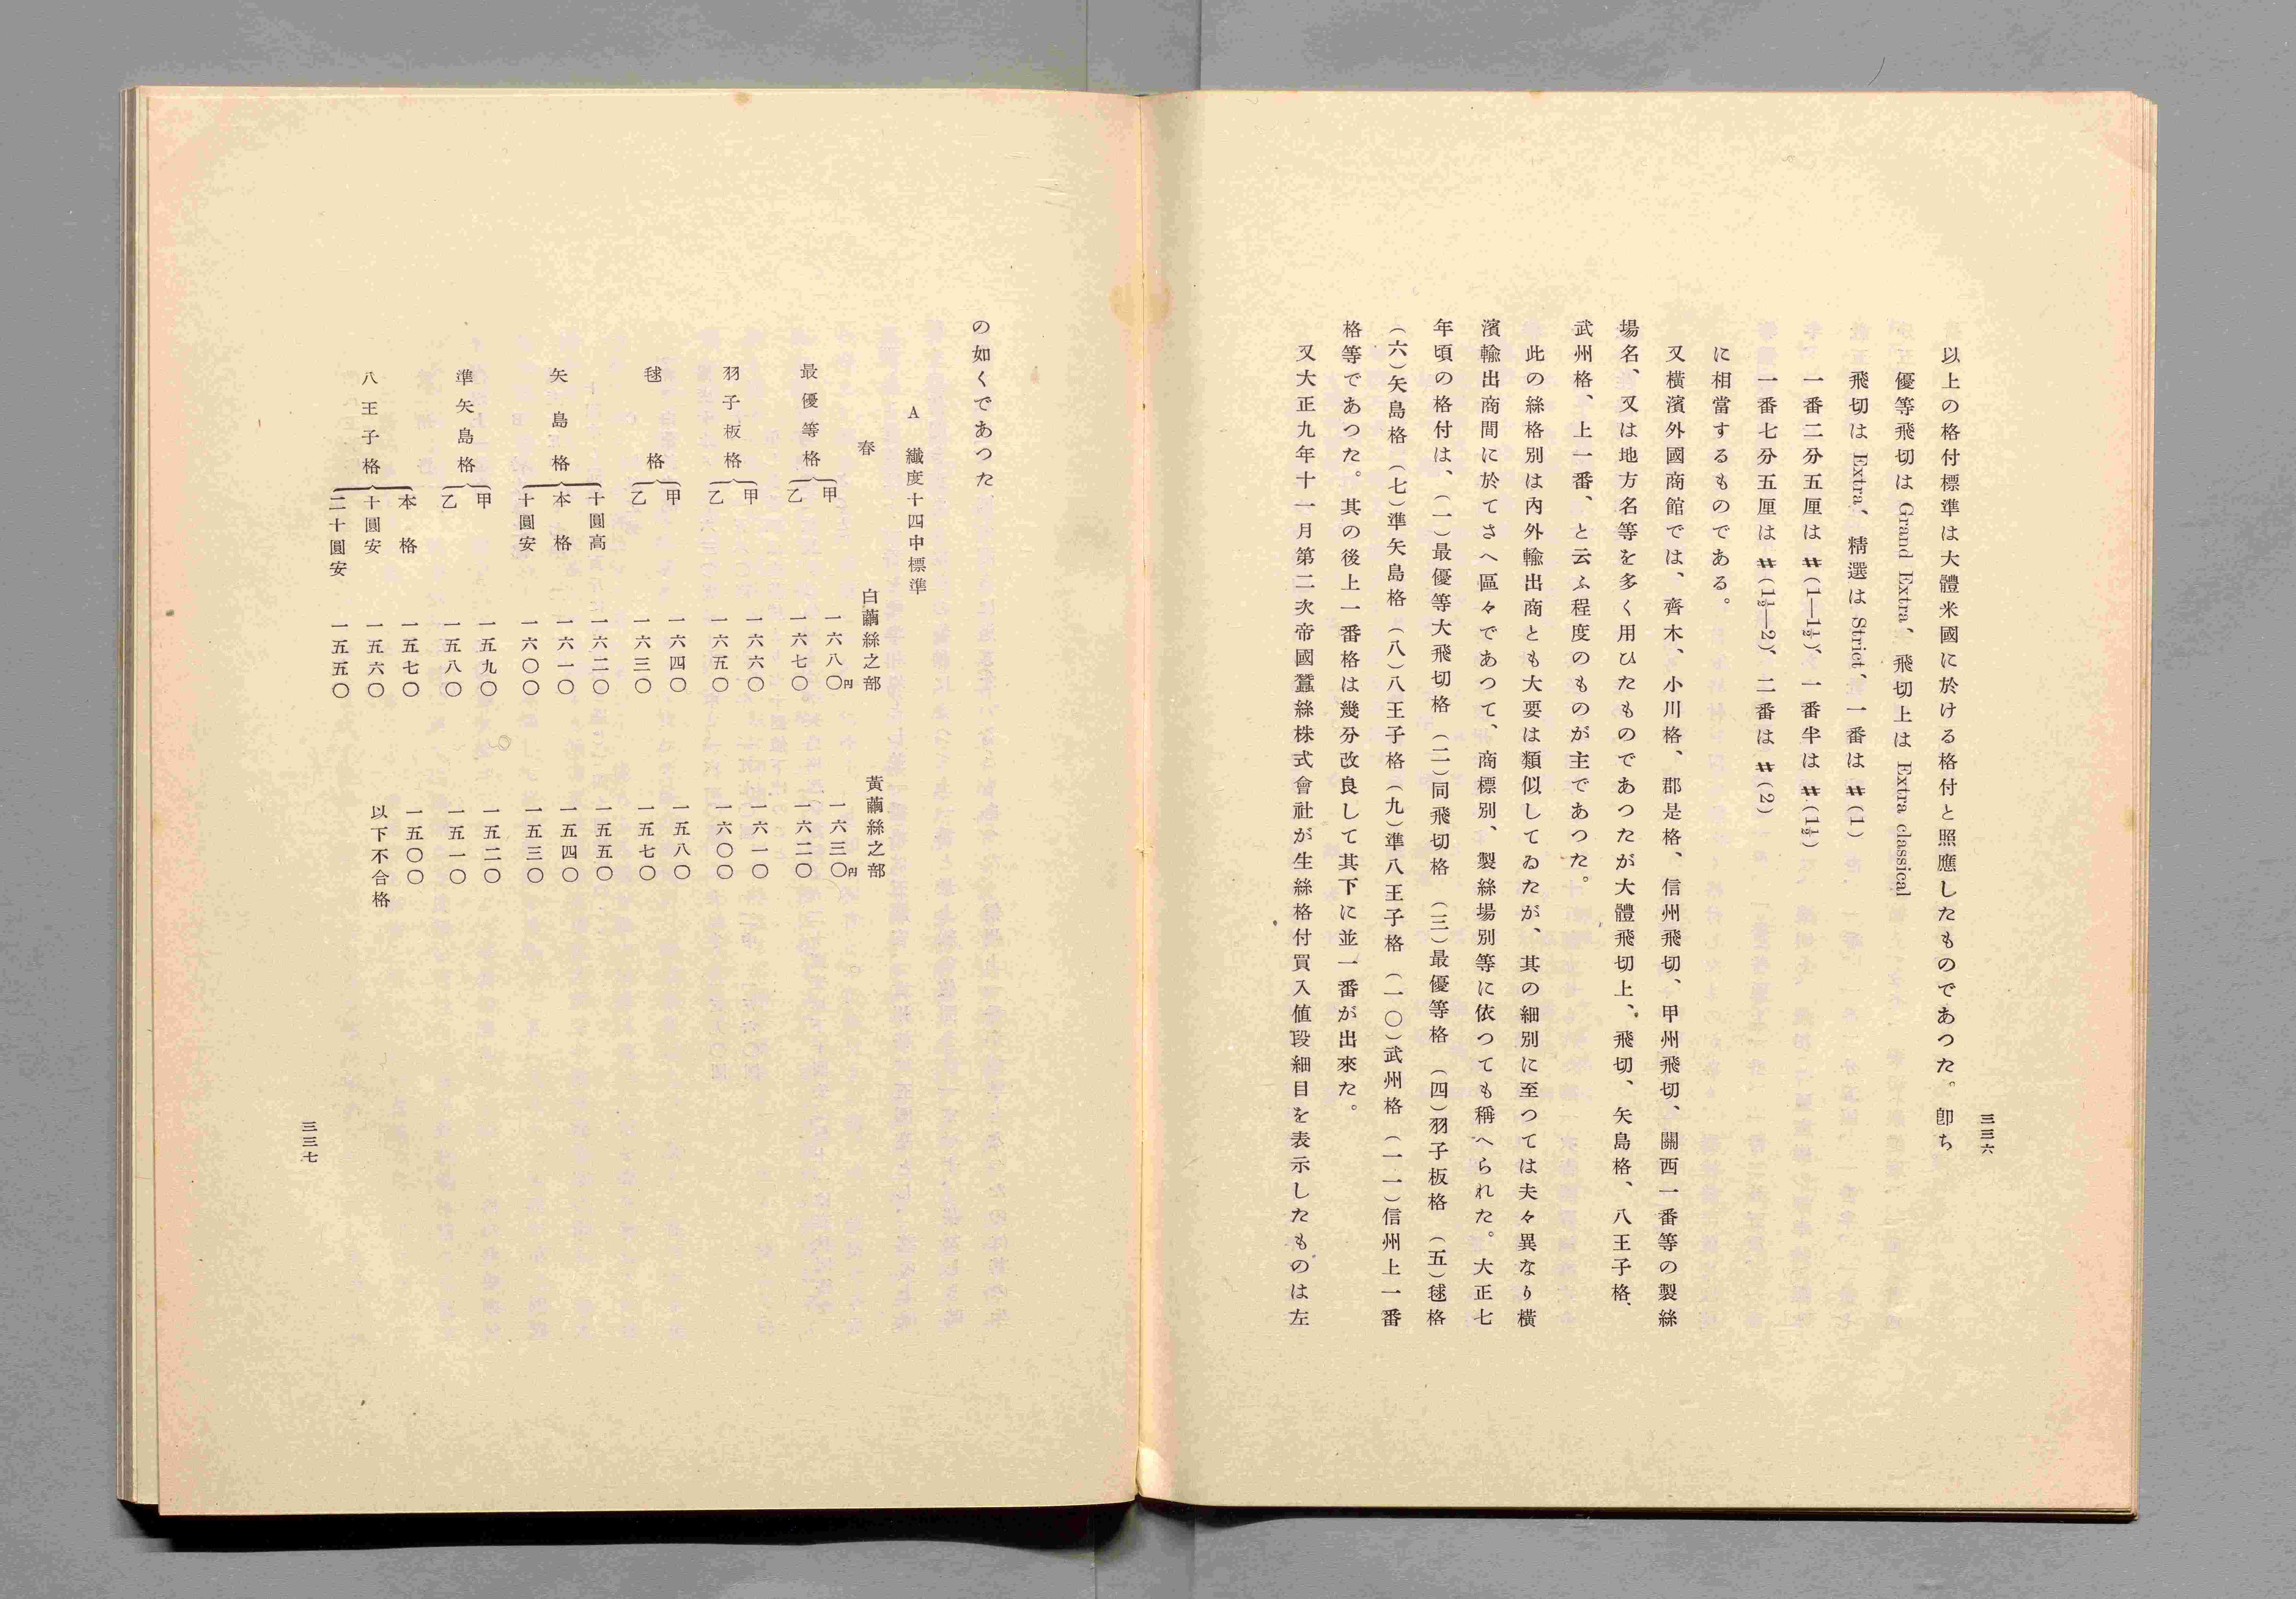 三三六
以上の格付標準は大體米國に於ける格付と照應したものであつた。卽ち
優等飛切は Grand Extra、飛切上は Extra classical
飛切は Extra、精選は Strict、一番は #(1)
一番二分五厘は #(1—1½)、一番半は #(1½)
一番七分五厘は #(1½—2)、二番は #(2)
に相當するものである。
又橫濱外國商館では、齊木、小川格、郡是格、信州飛切、甲州飛切、關西一番等の製絲
場名、又は地方名等を多く用ひたものであつたが大體飛切上、飛切、矢島格、八王子格、
武州格、上一番、と云ふ程度のものが主であつた。
此の絲格別は內外輸出商とも大要は類似してゐたが、其の細別に至つては夫々異なり橫
濱輸出商間に於てさへ區々であつて、商標別、製絲場別等に依つても稱へられた。大正七
年頃の格付は、(一)最優等大飛切格 (二)同飛切格 (三)最優等格 (四)羽子板格 (五)毬格
(六)矢島格 (七)準矢島格 (八)八王子格 (九)準八王子格 (一〇)武州格 (一一)信州上一番
格等であつた。其の後上一番格は幾分改良して其下に並一番が出來た。
又大正九年十一月第二次帝國蠶絲株式會社が生絲格付買入値段細目を表示したものは左
の如くであつた
A 纎度十四中標準
春 白繭絲之部 黃繭絲之部
最優等格 甲 一六八〇円 一六三〇円
乙 一六七〇 一六二〇
羽子板格 甲 一六六〇 一六一〇
乙 一六五〇 一六〇〇
毬格 甲 一六四〇 一五八〇
乙 一六三〇 一五七〇
矢島格 十圓高 一六二〇 一五五〇
本格 一六一〇 一五四〇
十圓安 一六〇〇 一五三〇
準矢島格 甲 一五九〇 一五二〇
乙 一五八〇 一五一〇
八王子格 本格 一五七〇 一五〇〇
十圓安 一五六〇 以下不合格
二十圓安 一五五〇
三三七